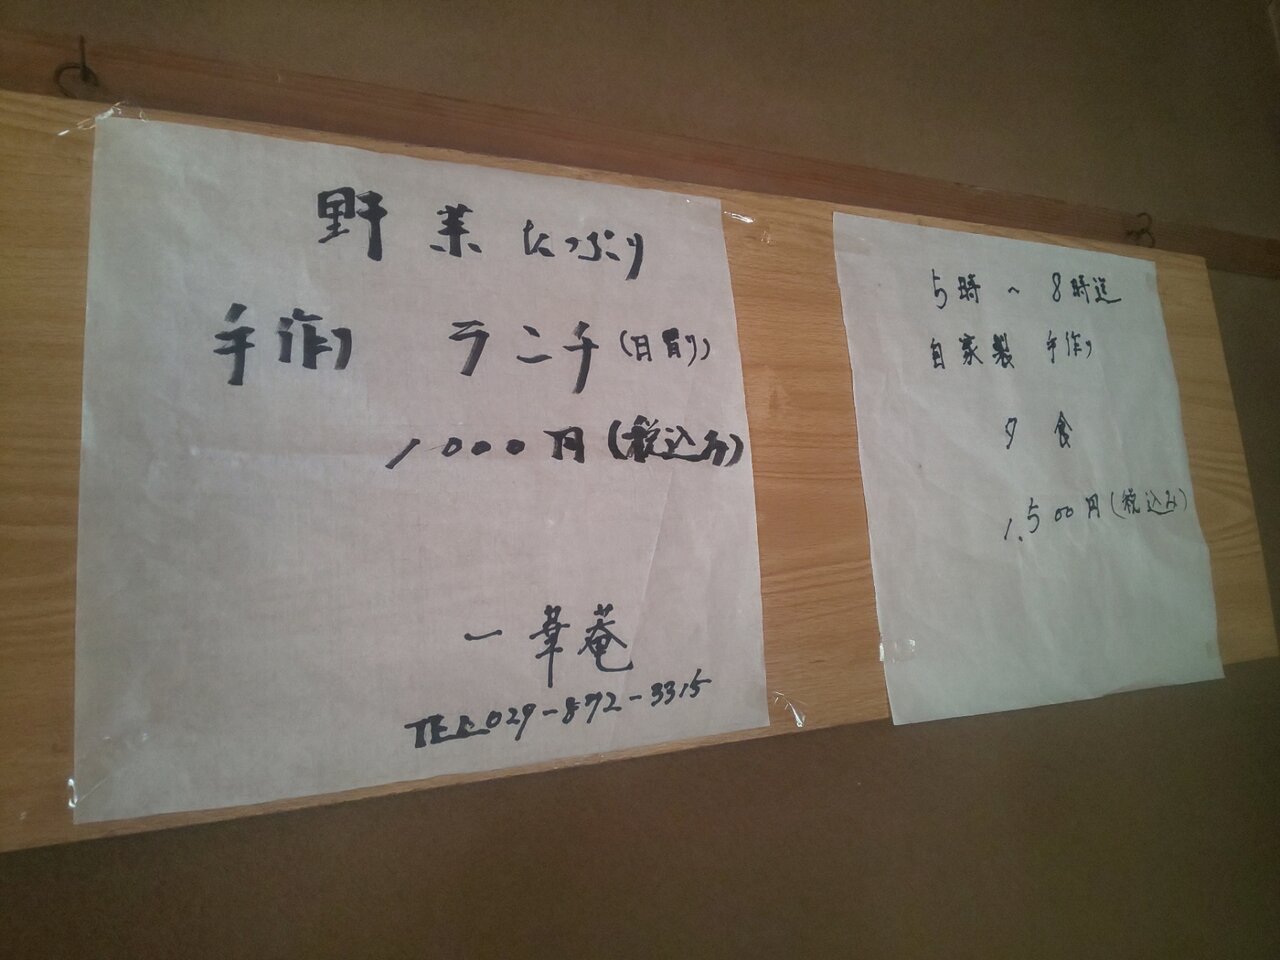 野菜たっぷり
手作り ランチ(日替り)
1000円(税込み)
一華庵
TEL029-872-3315
5時~8時迄
自家製 手作り
夕食
1,500円(税込み)